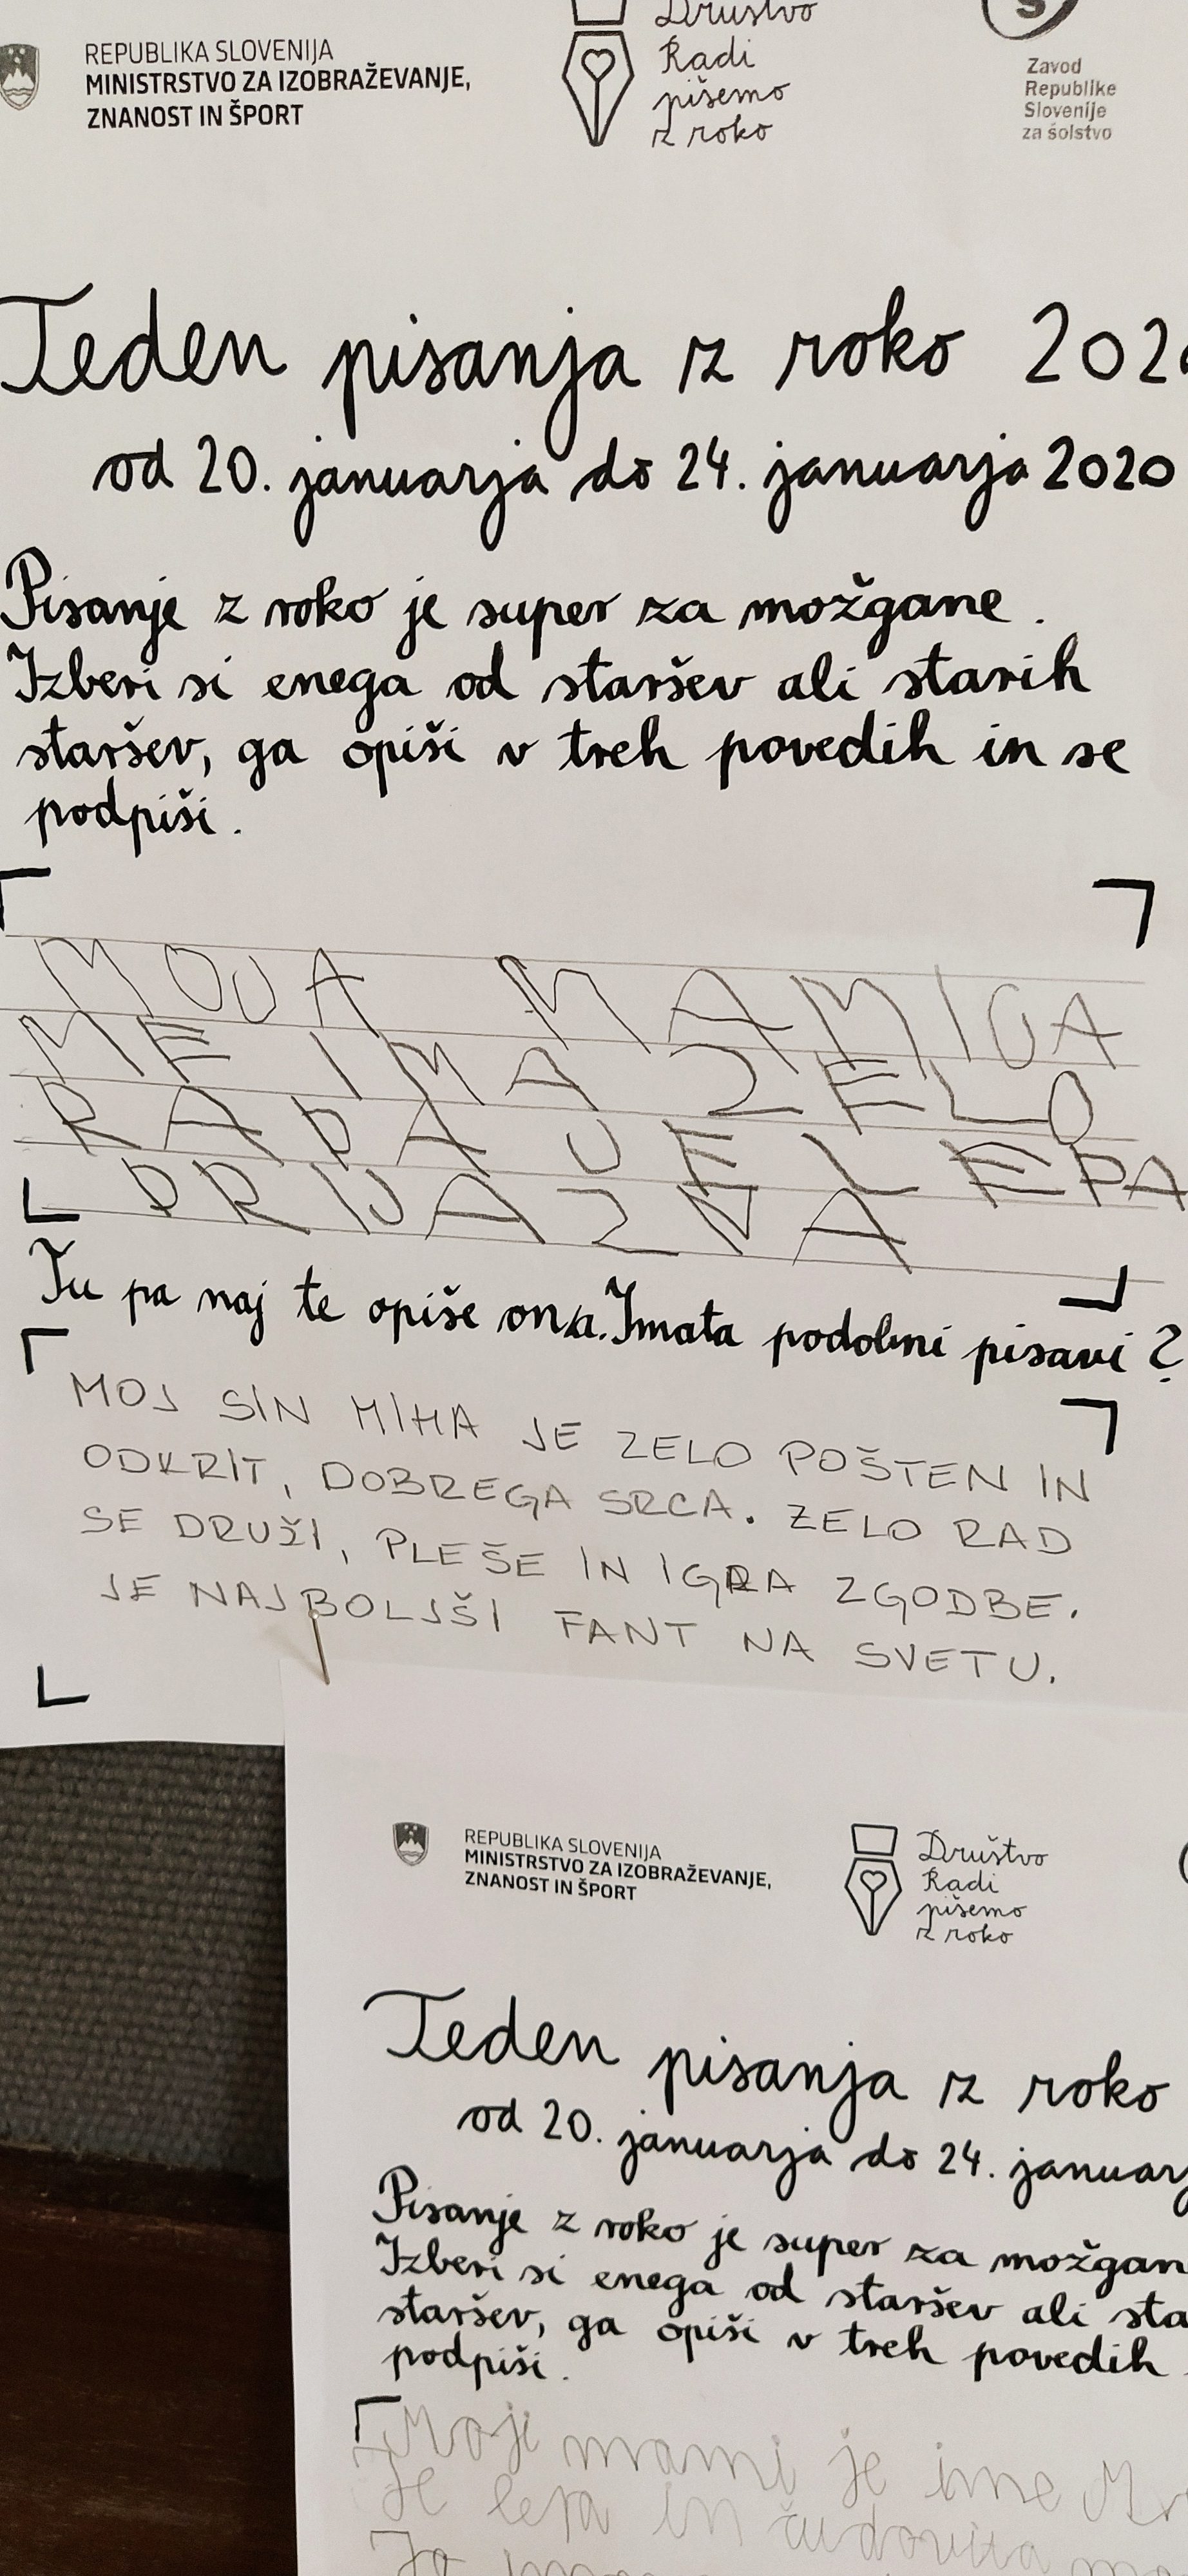 REPUBLIKA SLOVENIJA
MINISTRSTVO ZA IZOBRAŽEVANJE,
ZNANOST IN ŠPORT
Društvo
Radi
pišemo
z roko
S
Zavod
Republike
Slovenije
za šolstvo
Teden pisanja z roko 202
od 20. januarja do 24. januarja 2020
Pisanje z roko je super za možgane.
Izberi si enega od staršev ali starih
staršev, ga opiši v treh povedih in se
podpiši.
MOJA MAMICA
ME IMA ZELO
RADA JE LEPA
PRIJAZNA
Tu pa naj te opiše on/a. Imata podobni pisavi?
MOJ SIN MIHA JE ZELO POŠTEN IN
ODKRIT, DOBREGA SRCA. ZELO RAD
SE DRUŽI, PLEŠE IN IGRA ZGODBE.
JE NAJBOLJŠI FANT NA SVETU.
REPUBLIKA SLOVENIJA
MINISTRSTVO ZA IZOBRAŽEVANJE,
ZNANOST IN ŠPORT
Društvo
Radi
pišemo
z roko
Teden pisanja z roko
od 20. januarja do 24. januar
Pisanje z roko je super za možgan
Izberi si enega od staršev ali sta
staršev, ga opiši v treh povedih
podpiši.
Moji mami je ime
Je lepa in čudovita